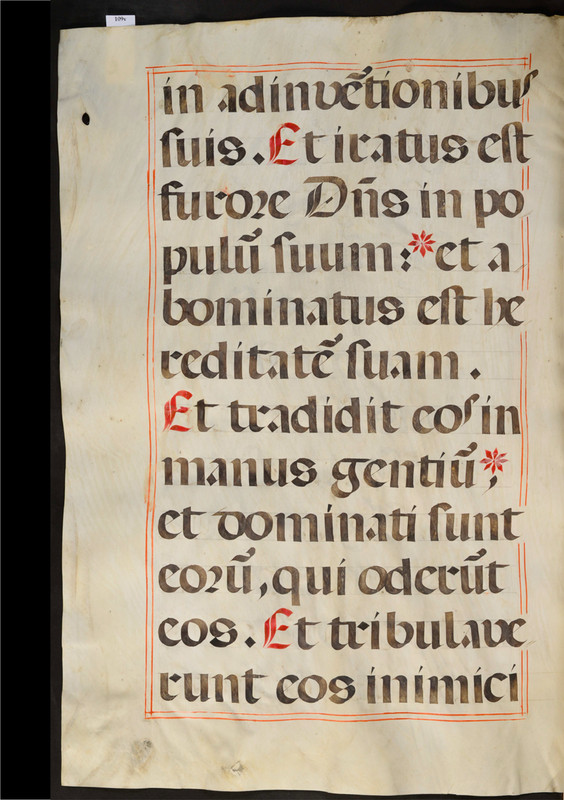 109v
in adinvẽtionibus
suis. Et iratus est
furore Dñs in po
pulũ suum: * et a
bominatus est he
reditatẽ suam.
Et tradidit eos in
manus gentiũ; *
et dominati sunt
eorũ, qui oderũt
eos. Et tribulave
runt eos inimici